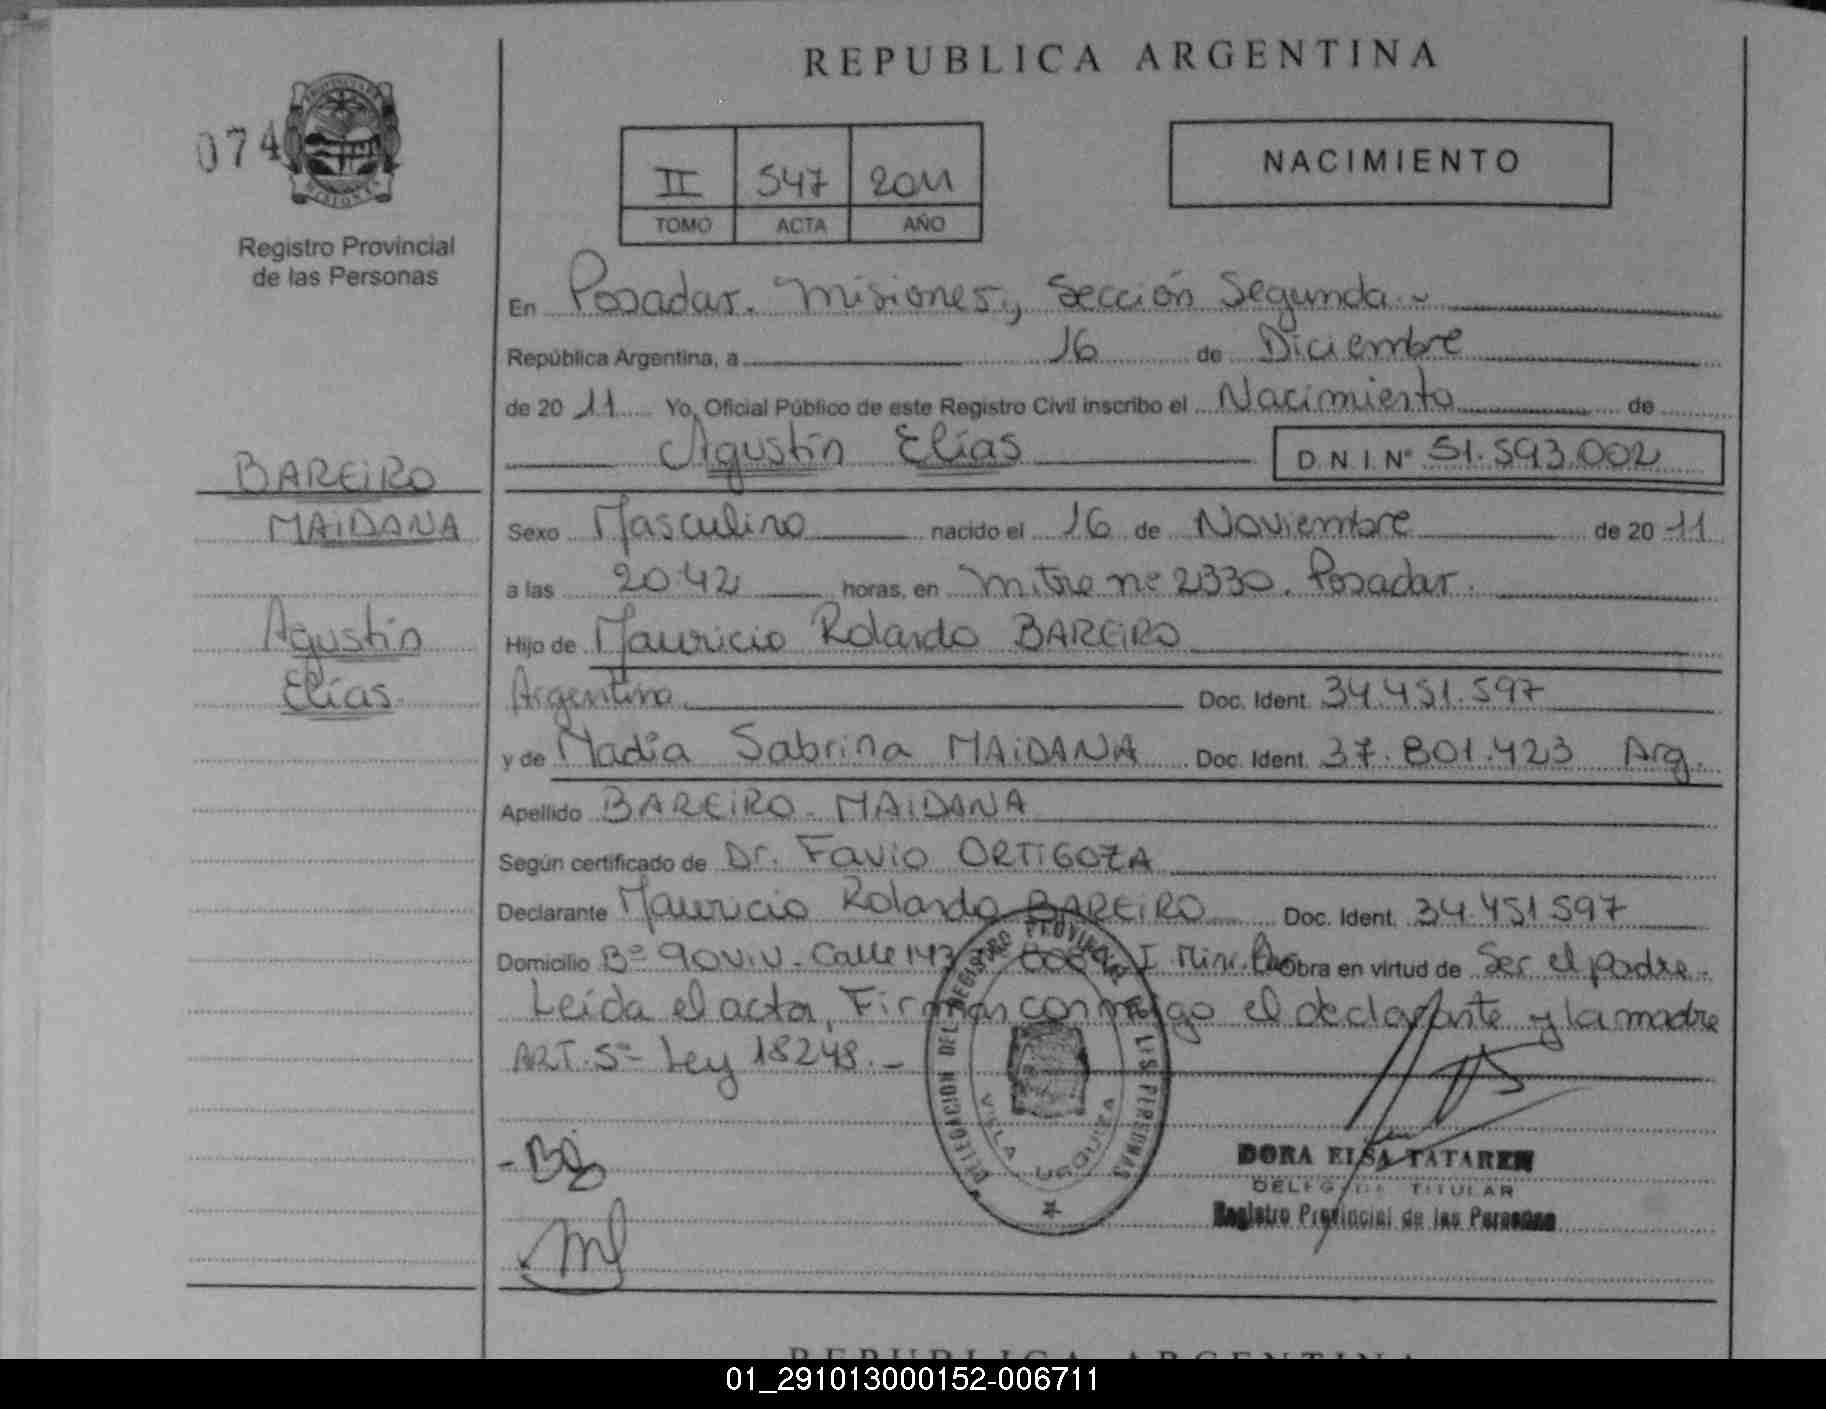 REPUBLICA ARGENTINA
074
II 547 2011
TOMO ACTA AÑO
NACIMIENTO
Registro Provincial
de las Personas
En Posadas. Misiones, Sección Segunda
República Argentina, a 16 de Diciembre
de 20 11 Yo, Oficial Público de este Registro Civil inscribo el Nacimiento de
Agustín Elías D.N.I. Nº 51.593.002
BAREIRO
MAIDANA
Agustín
Elías.
Sexo Masculino nacido el 16 de Noviembre de 20 11
a las 20:42 horas, en Mitre nº 2330. Posadas.
Hijo de Mauricio Rolando BAREIRO
Argentino Doc. Ident. 34.451.597
y de Nadia Sabrina MAIDANA Doc. Ident. 37.801.423 Arg.
Apellido BAREIRO - MAIDANA
Según certificado de Dr. Favio ORTIGOZA
Declarante Mauricio Rolando BAREIRO Doc. Ident. 34.451.597
Domicilio Bº 90 Viv. Calle 147 Obra en virtud de Ser el padre.
Leída el acta, Firman conmigo el declarante y la madre
ART. 5º Ley 18248.-
DELEGACION DEL REGISTRO PROVINCIAL PERSONAS
VILLA URQUIZA
DORA ELSA TATAREN
DELEGADA TITULAR
Registro Provincial de las Personas
REPUBLICA ARGENTINA
01_291013000152-006711